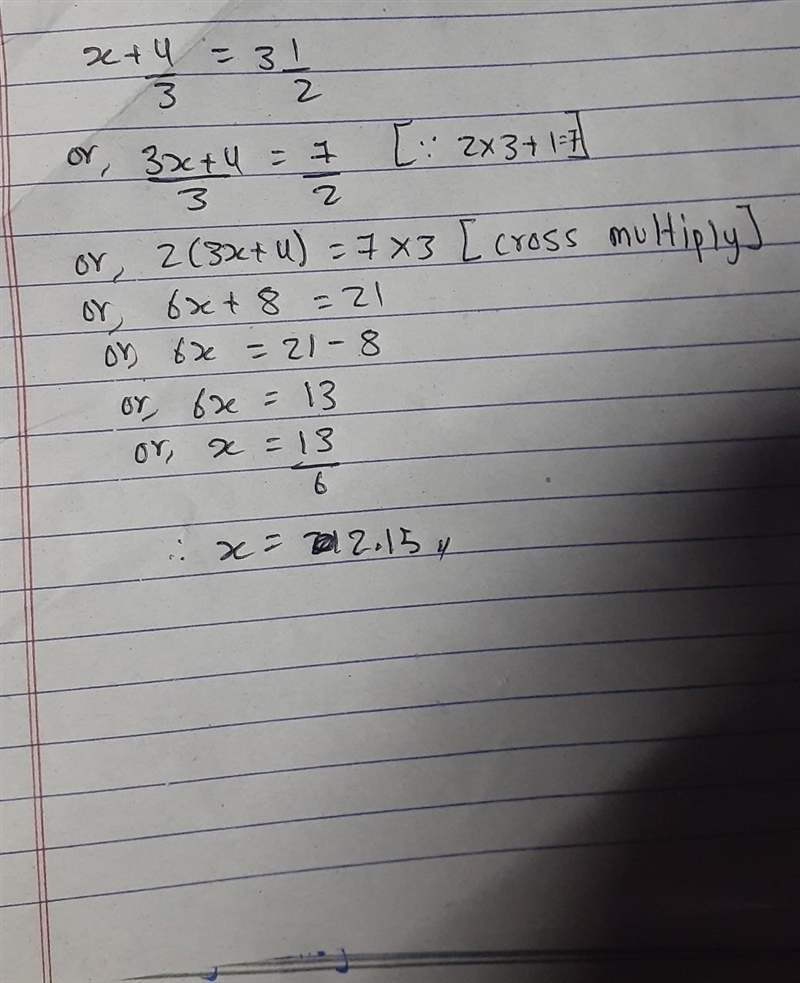 x + 4/3 = 3 1/2
or, (3x+4)/3 = 7/2 [∵ 2×3+1=7]
or, 2(3x+4) = 7×3 [cross multiply]
or, 6x + 8 = 21
or, 6x = 21 - 8
or, 6x = 13
or, x = 13/6
∴ x = 2.15